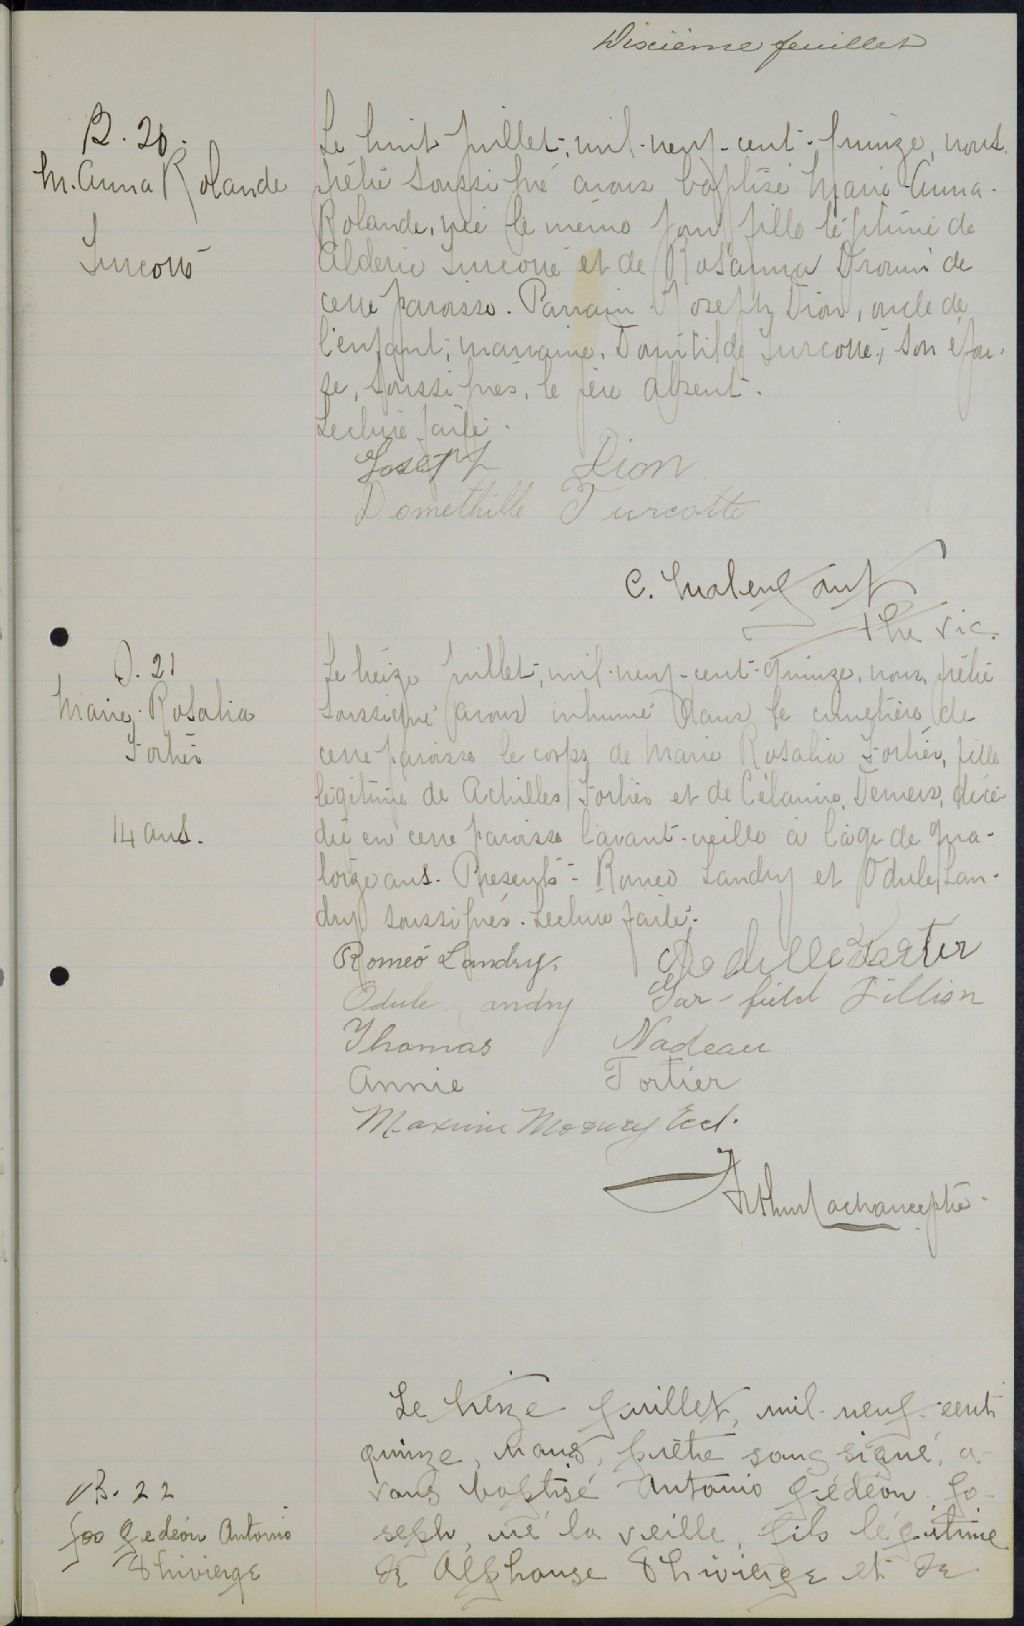 Dixième feuillet
B. 20.
M. Anna Rolande
Turcotte
Le huit juillet, mil-neuf-cent-quinze, nous,
prêtre soussigné avons baptisé Marie-Anna-
Rolande, née le même jour fille légitime de
Alderic Turcotte et de Rosanna Drouin de
cette paroisse. Parrain Joseph Dion, oncle de
l'enfant; marraine, Domitilde Turcotte, son épou-
se, soussignés, le père absent.
Lecture faite.
Joseph Dion
Domethille Turcotte
C. Malenfant
ptre vic.
S. 21
Marie-Rosalia
Fortier
14 ans.
Le treize juillet, mil-neuf-cent-quinze, nous, prêtre
soussigné avons inhumé dans le cimetière de
cette paroisse le corps de Marie Rosalia Fortier, fille
légitime de Achilles Fortier et de Célanire Demers, décé-
dée en cette paroisse l'avant-veille à l'âge de qua-
torze ans. Présents: Romeo Landry et Odule Lan-
dry soussignés. Lecture faite.
Roméo Landry.
Odule andry Gar-field Fillion
Thomas Nadeau
Annie Fortier
Maxime Ecel.
Arthur Lachance ptre
B. 22
Jos Gedeón Antonio
Thivierge
Le treize juillet, mil-neuf-cent
quinze, nous, prêtre soussigné, a-
vons baptisé Antonio Gédéon Jo-
seph, né la veille, fils légitime
de Alphonse Thivierge et de